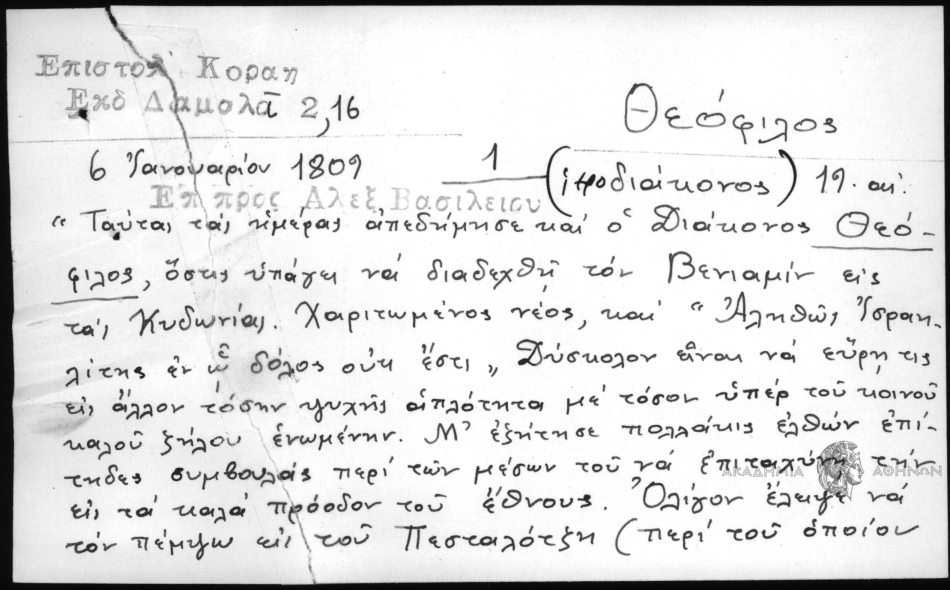 Επιστολ Κοραη
Εκδ Δαμαλᾶ 2,16
Θεόφιλος
6 Ἰανουαρίου 1809
1
(ἱεροδιάκονος) 19. αἰ.
Επ προς Αλεξ. Βασιλειου
“ Ταύτας τάς ἡμέρας ἀπεδήμησε καί ὁ Διάκονος Θεό-
φιλος, ὅστις ὑπάγει νά διαδεχθῇ τόν Βενιαμίν εἰς
τάς Κυδωνίας. Χαριτωμένος νέος, και “ Ἀληθῶς Ἰσραη-
λίτης ἐν ᾧ δόλος οὐκ ἔστι „ Δύσκολον εἶναι νά εὕρῃ τις
εἰς ἄλλον τόσην ψυχῆς ἁπλότητα μέ τόσον ὑπέρ τοῦ κοινοῦ
καλοῦ ζήλου ἑνωμένην. Μ' ἐζήτησε πολλάκις ἐλθών ἐπί-
τηδες συμβουλάς περί τῶν μέσων τοῦ νά ἐπιταχύνῃ τήν
εἰς τά καλά πρόοδον τοῦ ἔθνους. Ὀλίγον ἔλειψε νά
τόν πέμψω εἰς τοῦ Πεσταλότζη (περί τοῦ ὁποίου
ΑΚΑΔΗΜΙΑ ΑΘΗΝΩΝ